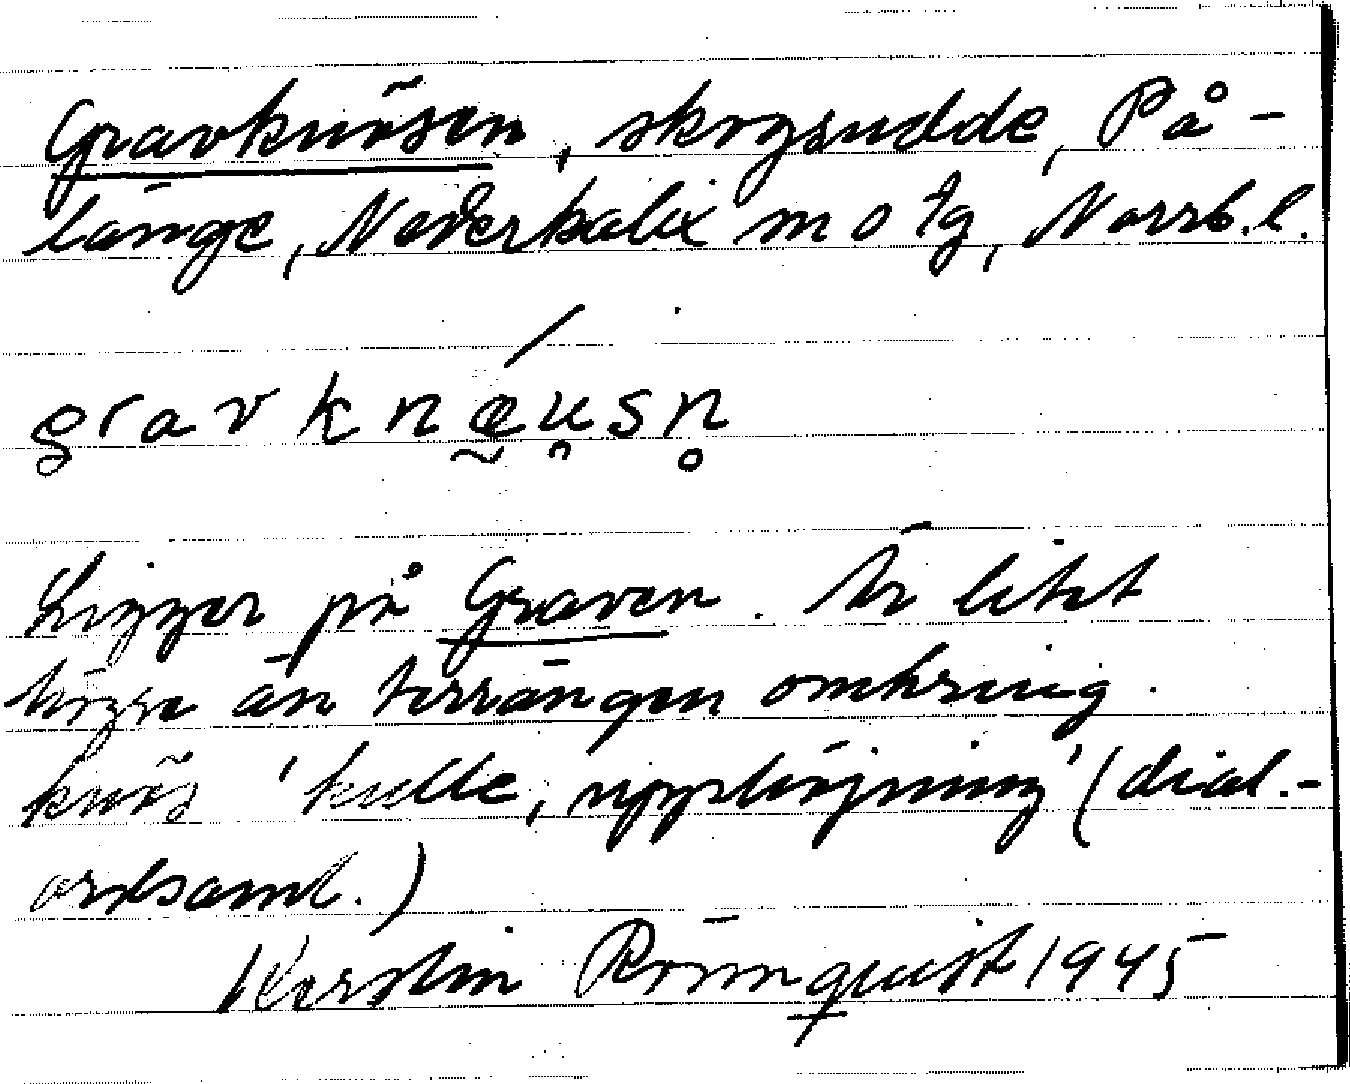 Gravknösen, skogsudde, På-
länge, Nederkalix m o tg, Norrb.l.
gravknæusn̥
Ligger på Graven. Är litet
högre än terrängen omkring.
knös 'kulle, upphöjning' (dial.-
ordsaml.)
Kerstin Rönnquist 1945